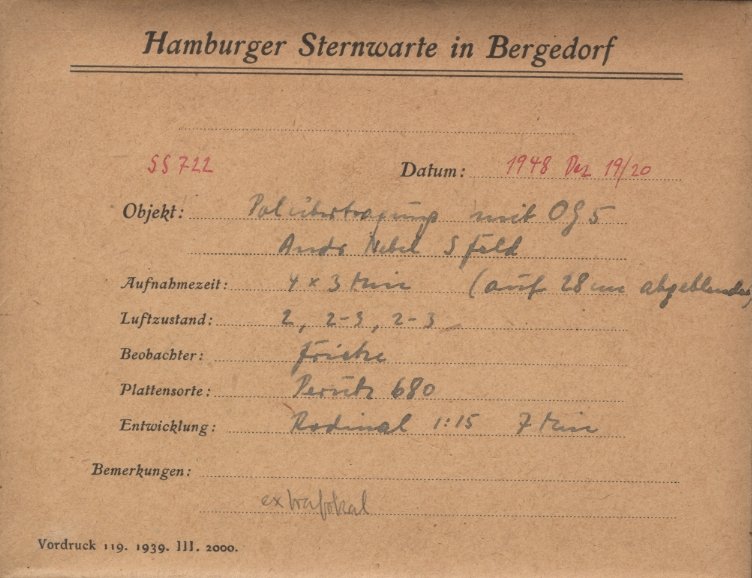 Hamburger Sternwarte in Bergedorf
SS 722 Datum: 1948 Dez 19/20
Objekt: Polübertragung mit OG5
Andr Nebel S Feld
Aufnahmezeit: 4 x 3 Min (auf 28 cm abgeblendet)
Luftzustand: 2, 2-3, 2-3
Beobachter: Fricke
Plattensorte: Perutz 680
Entwicklung: Rodinal 1:15 7 Min
Bemerkungen:
extrafokal
Vordruck 119. 1939. III. 2000.